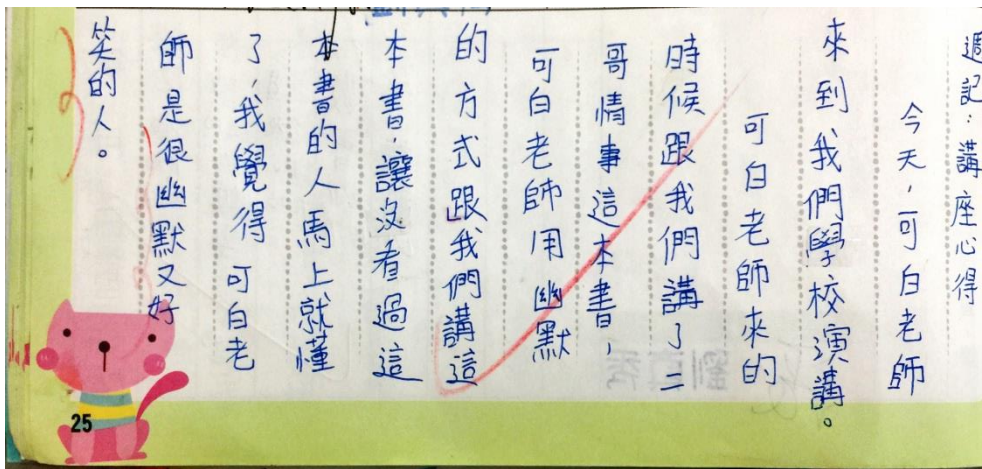 週記：講座心得
今天，可白老師
來到我們學校演講。
可白老師來的
時候跟我們講了二
哥情事這本書，
可白老師用幽默
的方式跟我們講這
本書，讓沒看過這
本書的人馬上就懂
了，我覺得可白老
師是很幽默又好
笑的人。
25